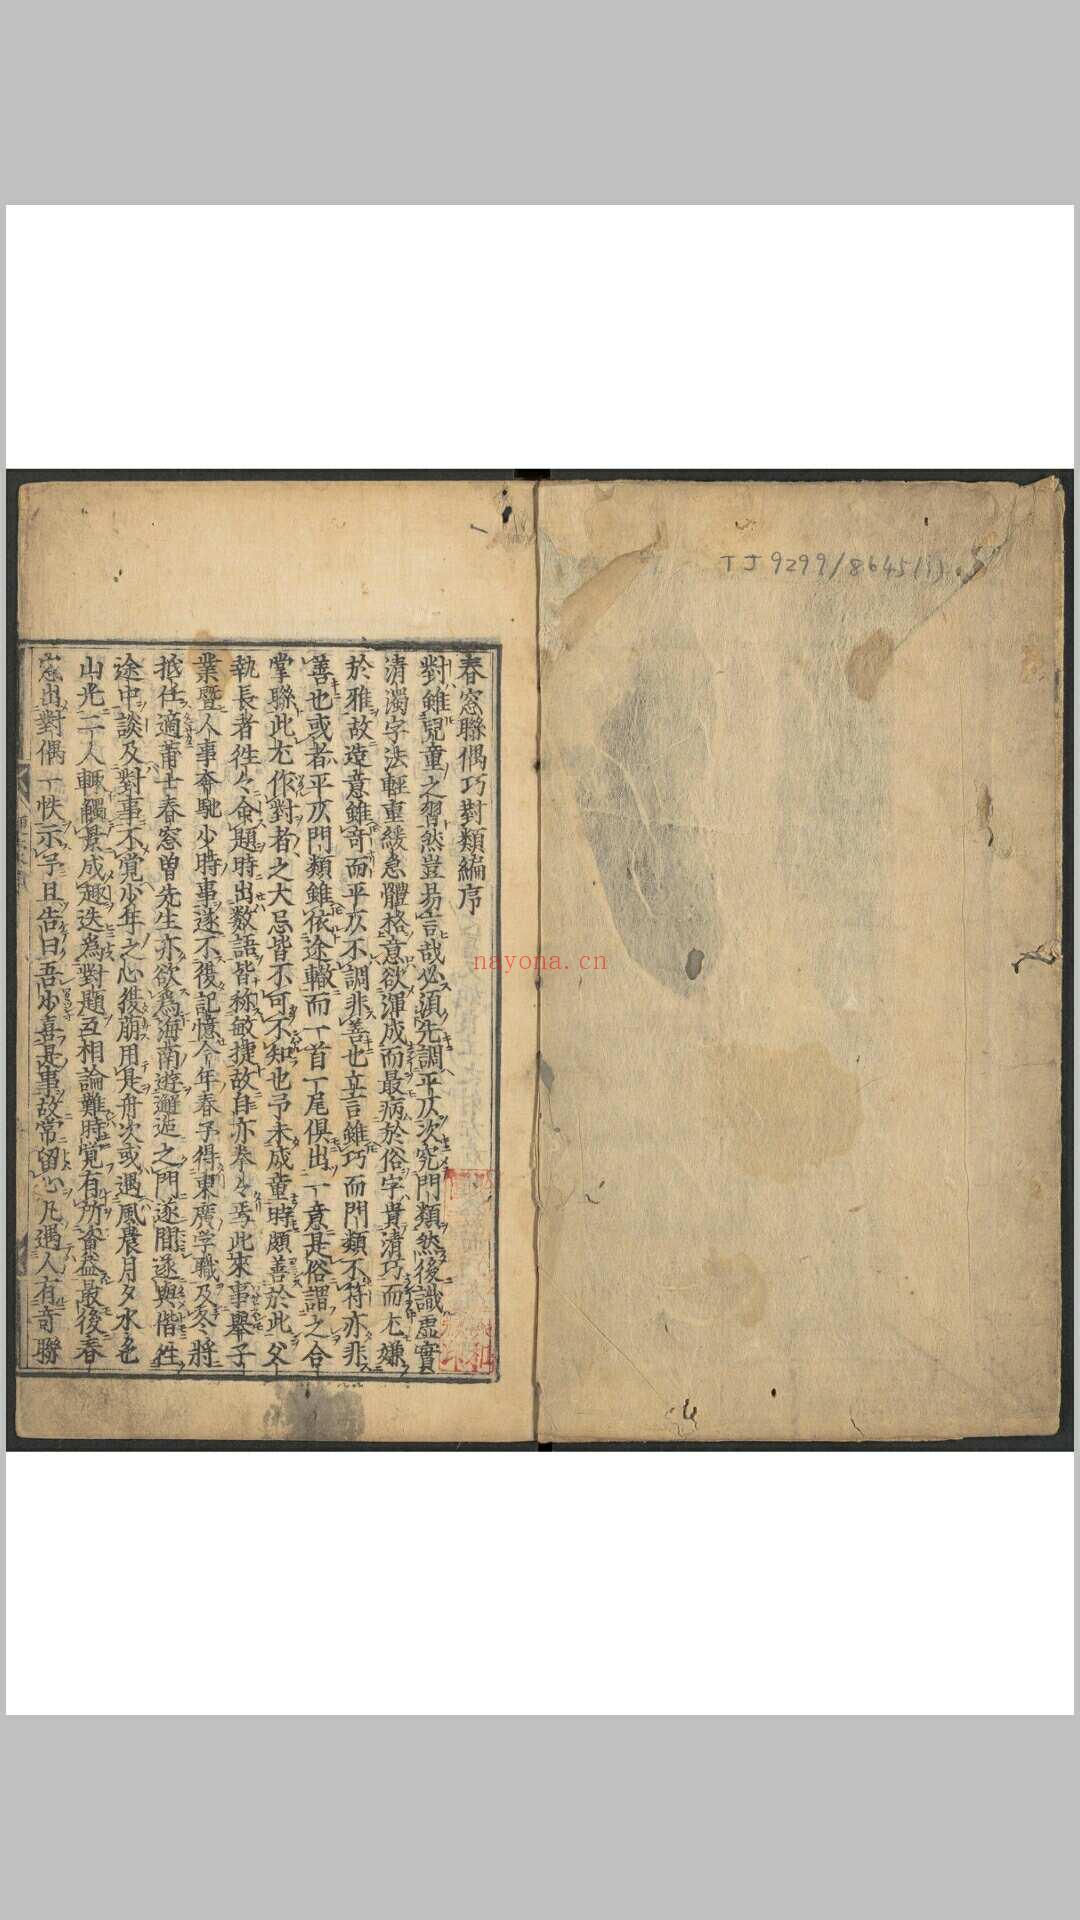 TJ 9299/8645(1)
春窓聯偶巧對類編序
對雖兒童之習然豈易言哉必須先調平仄次究門類然後識虛實
清濁字法輕重緩急體格意欲渾成而最病於俗字貴清巧而尤嫌
於雅故造意雖奇而平仄不調非善也立言雖巧而門類不符亦非
善也或者平仄門類雖依途轍而一首一尾俱出一意是俗謂之合
掌聯此尤作對者之大忌皆不可不知也予未成童時頗善於此父
執長者徃々命題時出数語皆称敏捷故自亦拳々焉此來事舉子
業暨人事奪馳少時事遂不復記憶今年春予得東廣学職及冬將
抵任適莆士春窓曽先生亦欲為海南遊邂逅之門遂間遂與偕徃
途中談及對事不覚少年之心復萌用是舟次或遇風晨月夕水色
山光二人輒觸景成趣迭為對題互相論難時覚有所資益最後春
窓出對偶一帙示予且告曰吾少喜是事故常留心凡遇人有奇聯
nayona.cn